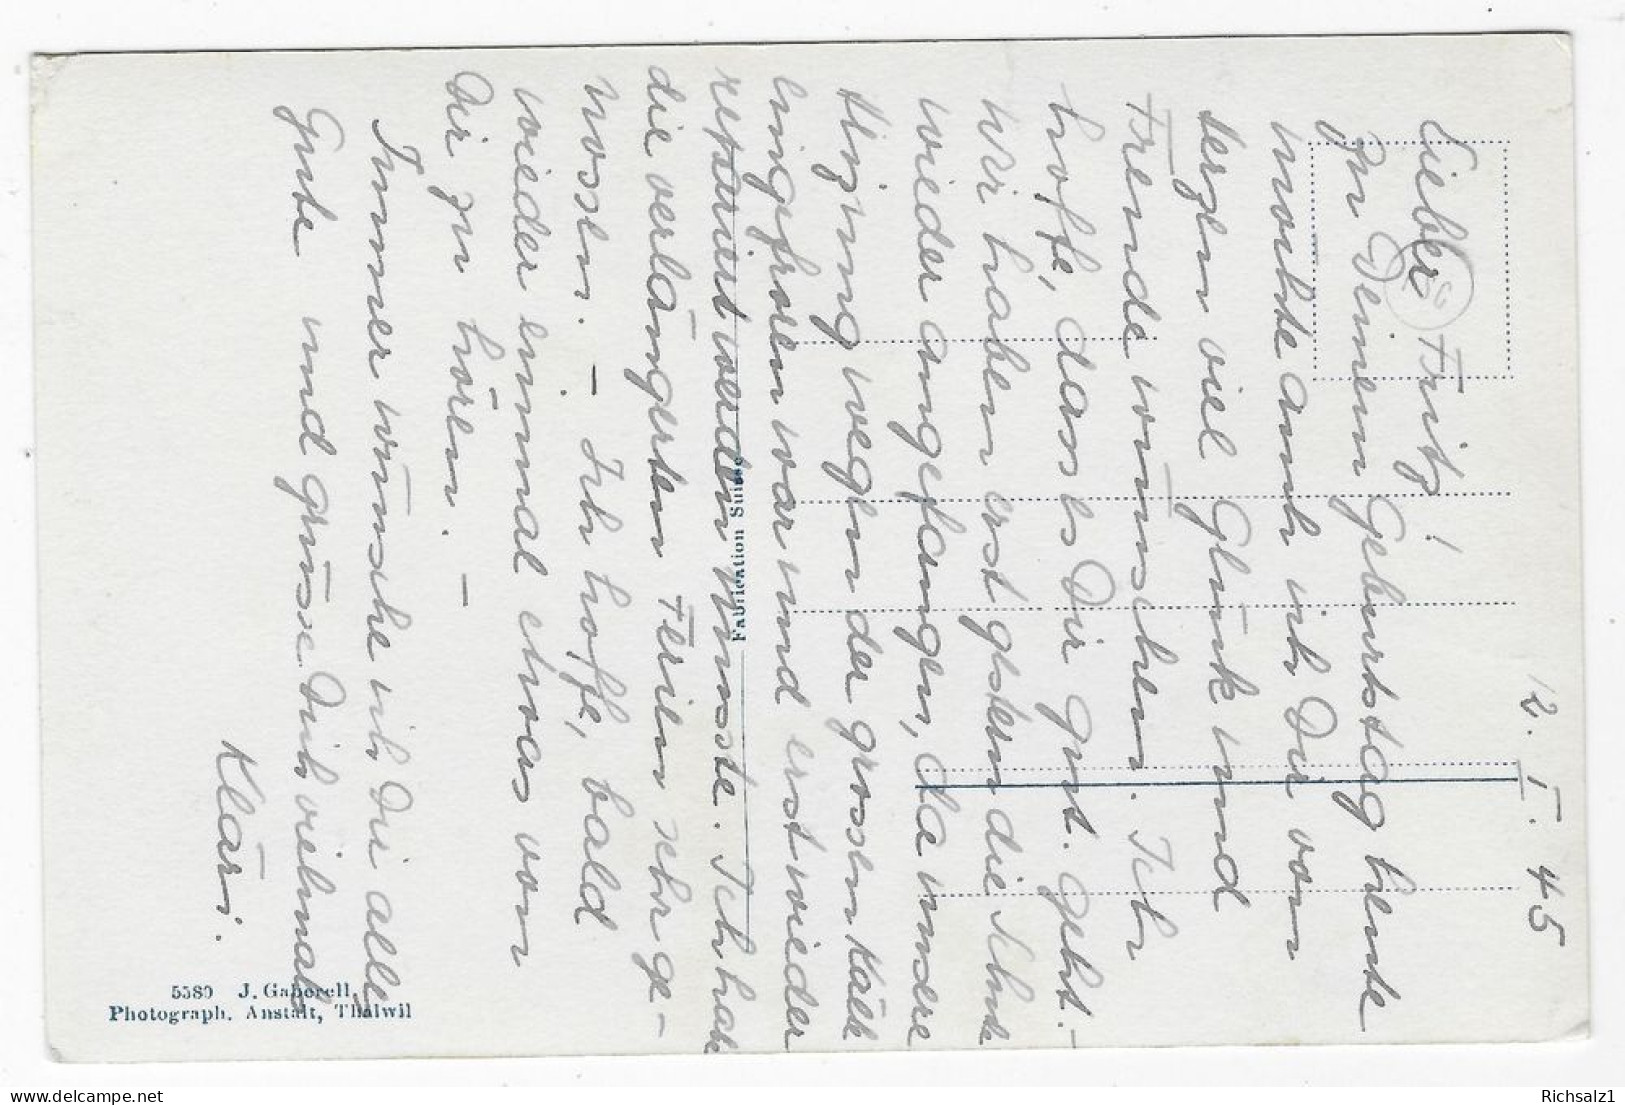 12. I. 45
Lieber Fritz!
Zu Deinem Geburtstag heute
möchte auch ich Dir von
Herzen viel Glück und
Freude wünschen. Ich
hoffe, dass es Dir gut geht. –
Wir haben erst gestern die Schule
wieder angefangen, da unsere
Heizung wegen der grossen Kälte
eingefroren war und erst wieder
repariert werden musste. Ich habe
die verlängerten Ferien sehr ge-
nossen. – Ich hoffe, bald
wieder einmal etwas von
Dir zu hören. –
Immer wünsche ich Dir alles
Gute und grüsse Dich vielmals
Kläri.
Fabrication Suisse
5580 J. Gaberell,
Photograph. Anstalt, Thalwil
Richsalz1